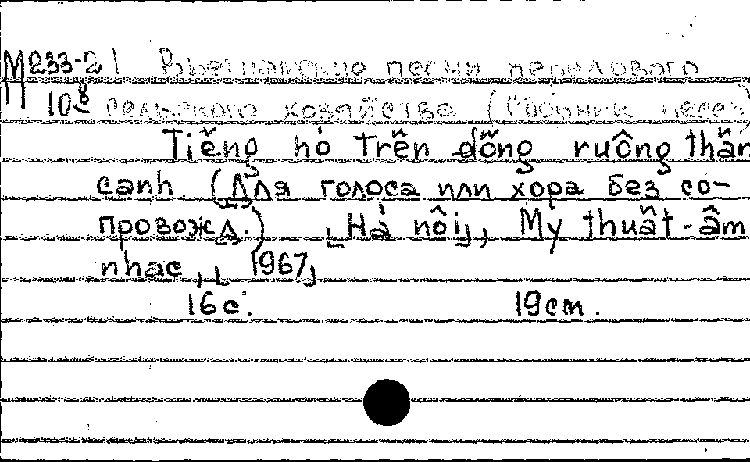 M233-21 Вьетнамские песни передового
10⁸ сельского хозяйства (Сборник песен)
Tiếng hò trên đồng ruộng thâm
canh (Для голоса или хора без со-
провожд.) [Hà nội], Mỹ thuật-âm
nhạc, [1967]
16 с. 19 cm.